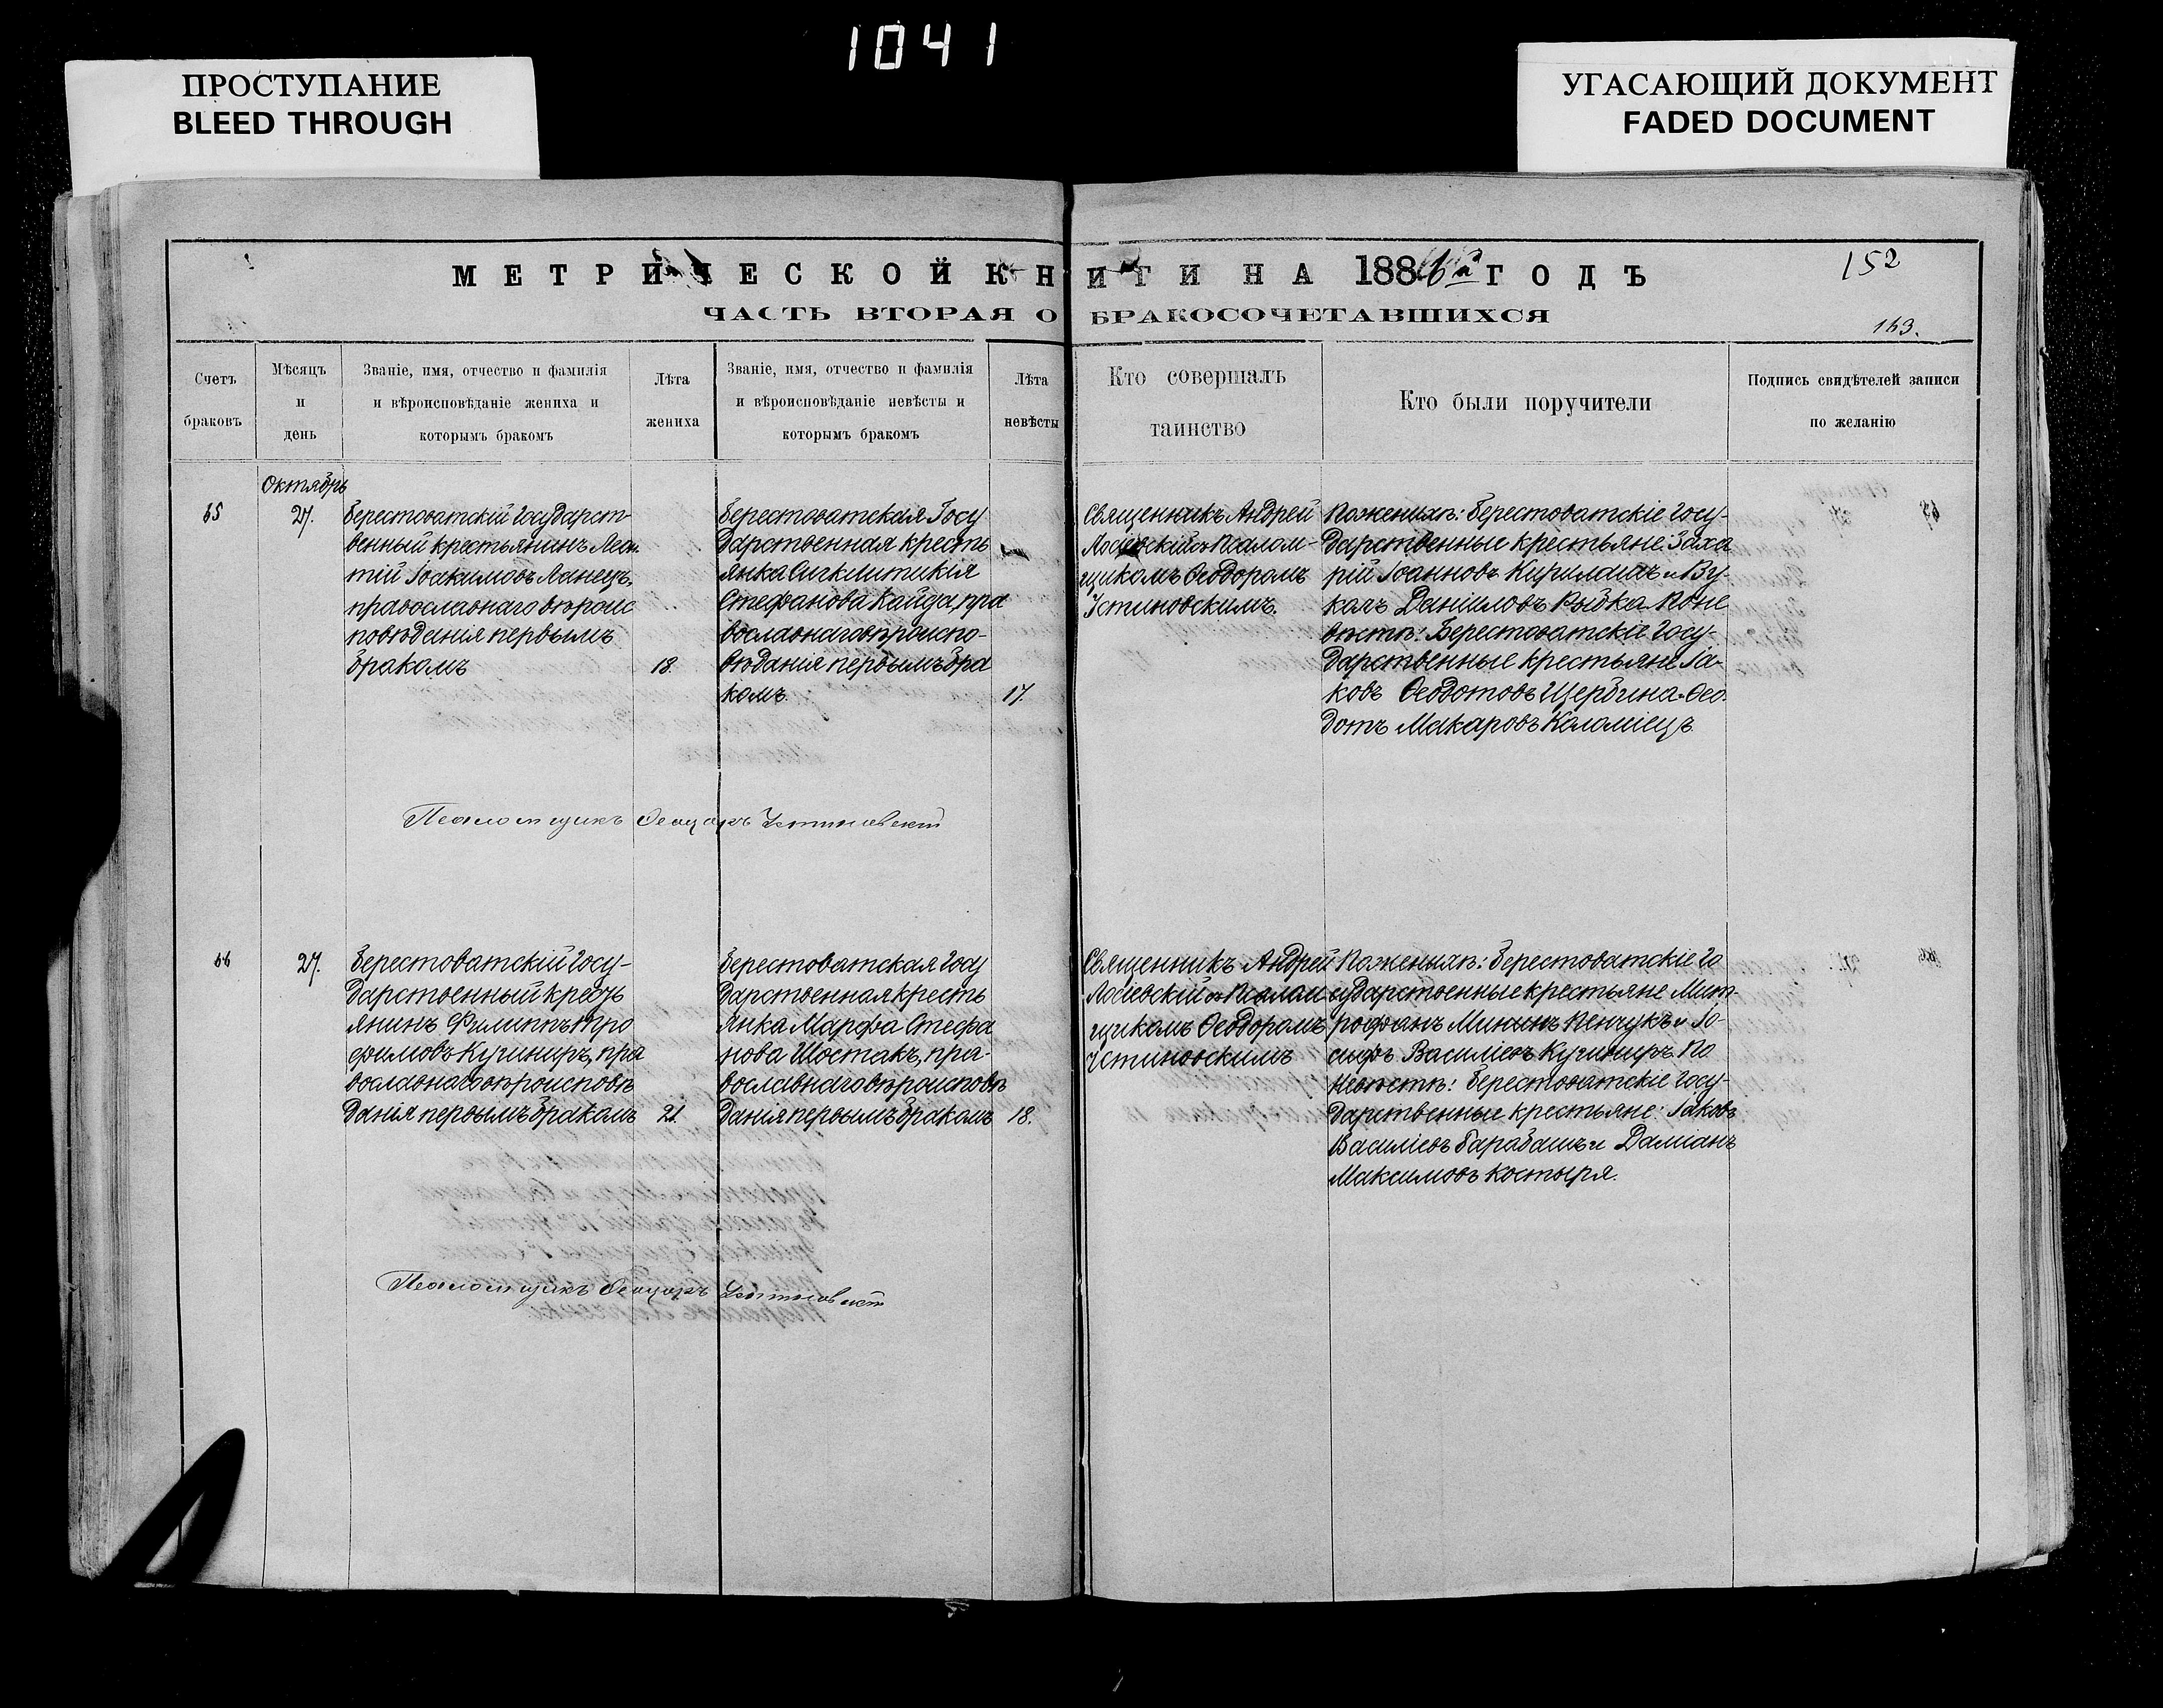 1041
ПРОСТУПАНИЕ
BLEED THROUGH
УГАСАЮЩИЙ ДОКУМЕНТ
FADED DOCUMENT
МЕТРИЧЕСКОЙ КНИГИ НА 1886й ГОДЪ
152
ЧАСТЬ ВТОРАЯ О БРАКОСОЧЕТАВШИХСЯ
163.
Счетъ
браковъ
Мѣсяцъ
и
день
Званіе, имя, отчество и фамилія
и вѣроисповѣданіе жениха и
которымъ бракомъ
Лѣта
жениха
Званіе, имя, отчество и фамилія
и вѣроисповѣданіе невѣсты и
которымъ бракомъ
Лѣта
невѣсты
Кто совершалъ
таинство
Кто были поручители
Подпись свидѣтелей записи
по желанію
65
Октябрь
27.
Берестоватскій Государст-
венный крестьянинъ Леон
тій Іоакимовъ Ланецъ,
православнаго вѣроис
повѣданія первымъ
бракомъ
18.
Берестоватская Госу
дарственная кресть
янка Сигклитикія
Стефанова Кайда, пра
вославнаго вѣроиспо-
вѣданія первымъ бра
комъ.
17.
Священникъ Андрей
Лосіевскій съ Псалом-
щикомъ Ѳеодоромъ
Устиновскимъ.
По женихѣ: Берестоватскіе Госу-
дарственные крестьяне: Заха
рій Іоанновъ и Ву-
калъ Даниловъ Рыбка. По не
вѣстѣ: Берестоватскіе Госу-
дарственные крестьяне Іа-
ковъ Ѳеодотовъ Щербина и Ѳео-
дотъ Макаровъ Коломіецъ.
Псаломщикъ Ѳеодоръ Устиновскій
66
27.
Берестоватскій Госу-
дарственный кресть
янинъ Филиппъ Тро
фимовъ Кушниръ, пра
вославнаго вѣроисповѣ
данія первымъ бракомъ
21.
Берестоватская Госу
дарственная кресть
янка Марфа Стефа
нова Шостакъ, пра-
вославнаго вѣроисповѣ
данія первымъ бракомъ
18.
Священникъ Андрей
Лосіевскій съ Псалом
щикомъ Ѳеодоромъ
Устиновскимъ
По женихѣ: Берестоватскіе Го
сударственные крестьяне Мит-
рофанъ Мининъ и Іо-
сифъ Василіевъ Кушниръ. По
невѣстѣ: Берестоватскіе Госу-
дарственные крестьяне: Іаковъ
Василіевъ Барабашъ и Даміанъ
Максимовъ Костыря.
Псаломщикъ Ѳеодоръ Устиновскій